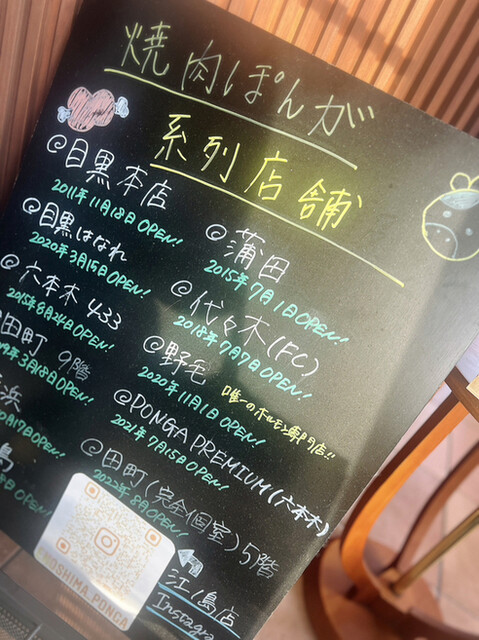 焼肉ぽんが
系列店舗
@目黒本店
2011年11月18日 OPEN!
@目黒はなれ
2020年3月15日 OPEN!
@六本木 433
2015年8月24日 OPEN!
田町 9階
年3月18日 OPEN!
浜
月17日 OPEN!
島
日 OPEN!
@蒲田
2015年7月1日 OPEN!
@代々木(FC)
2018年7月7日 OPEN!
@野毛
唯一のホルモン専門店!!
2020年11月1日 OPEN!
@PONGA PREMIUM(六本木)
2021年7月15日 OPEN!
@田町(完全個室)5階
2022年8月 OPEN!
江ノ島店
Instagra
NOSHIMA_PONGA